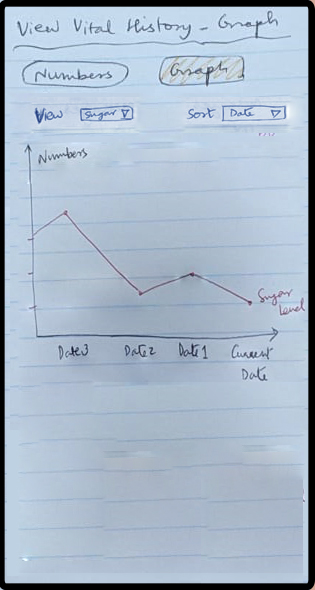 View Vital History - Graph
Numbers Graph
View Sugar Sort Date
Numbers
Sugar
Level
Date3 Date2 Date1 Current
Date